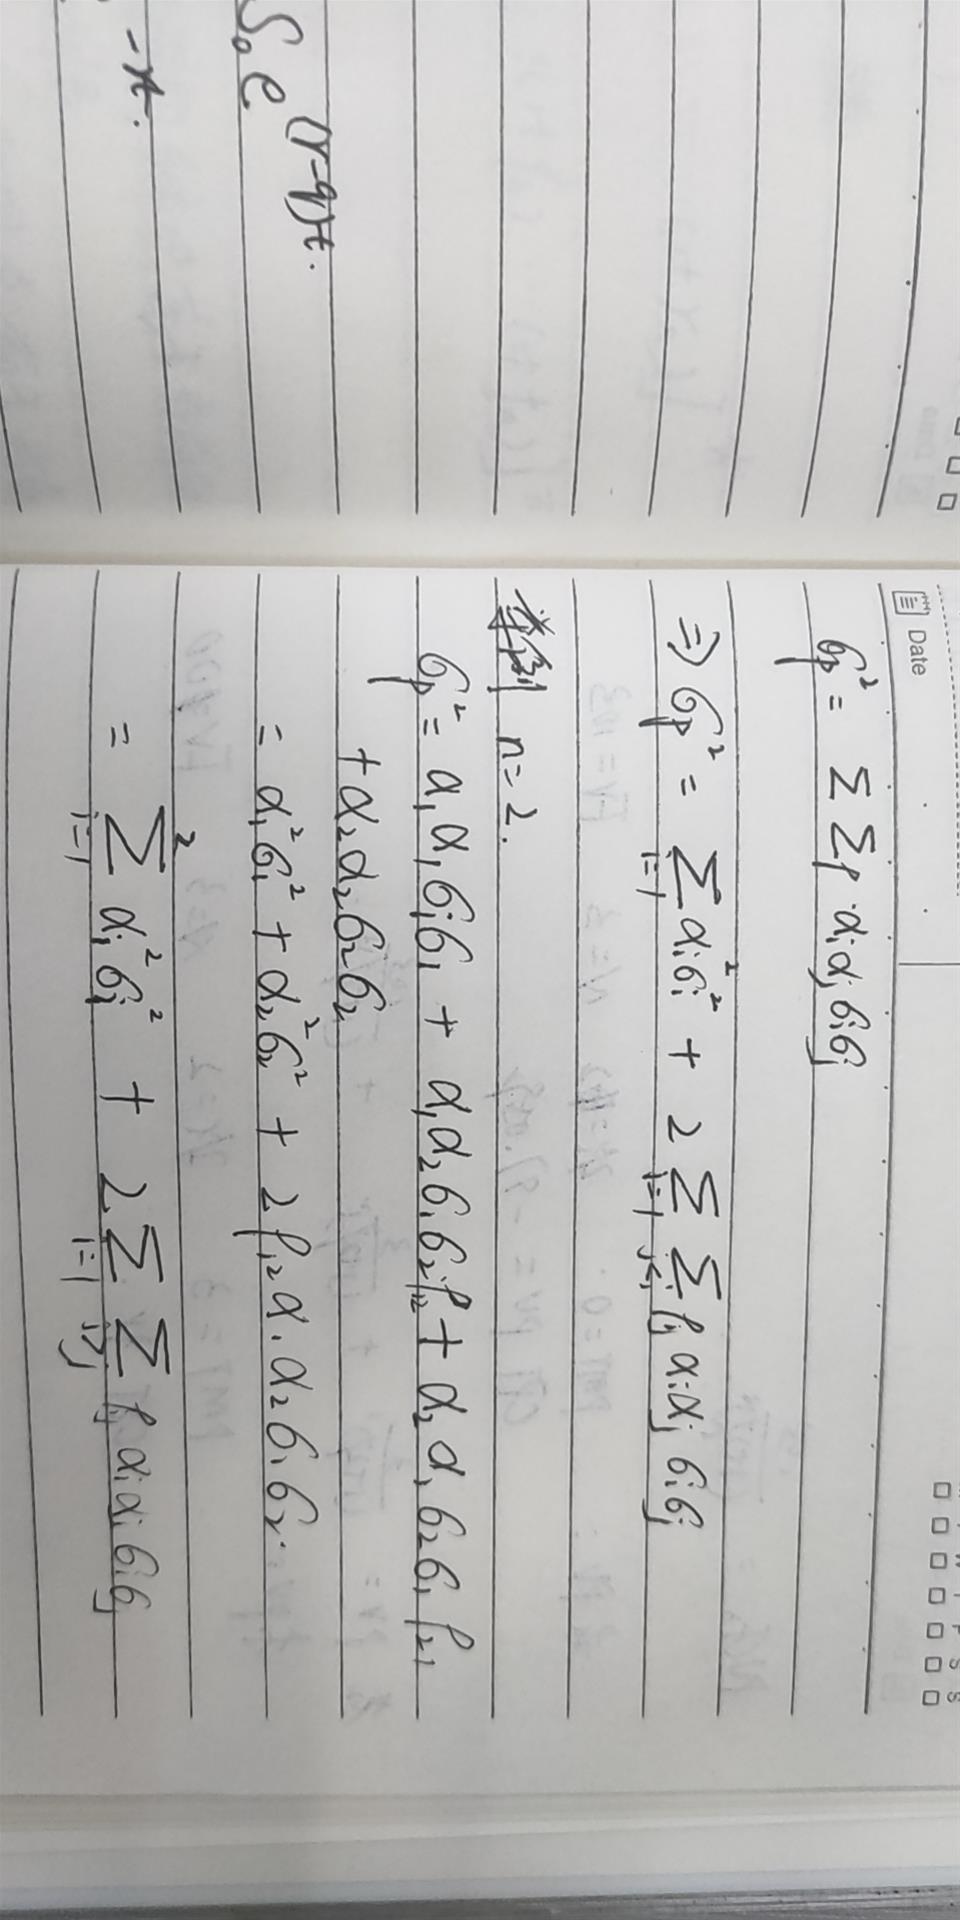 -rt.
S₀e^(r-q)t.
Date
σp² = ΣΣρ·αiαjσiσj
⇒ σp² = Σi=1 αi²σi² + 2 Σi=1 Σj<i ρij αiαjσiσj
举例 n=2.
σp² = α₁α₁σ₁σ₁ + α₁α₂σ₁σ₂ρ₁₂ + α₂α₁σ₂σ₁ρ₂₁
+ α₂α₂σ₂σ₂
= α₁²σ₁² + α₂²σ₂² + 2ρ₁₂α₁α₂σ₁σ₂.
= Σi=1² αi²σi² + 2 Σi=1 Σi>j ρij αiαjσiσj